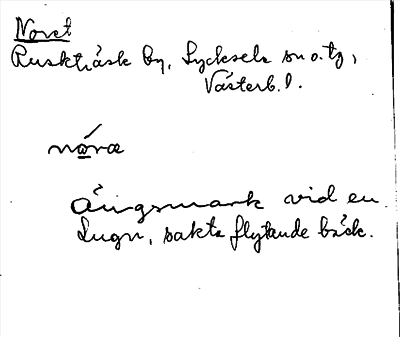 Noret
Ruskträsk by, Lycksele sn o. tg,
Västerb. l.
nǻræ
Ängsmark vid en
lugn, sakta flytande bäck.